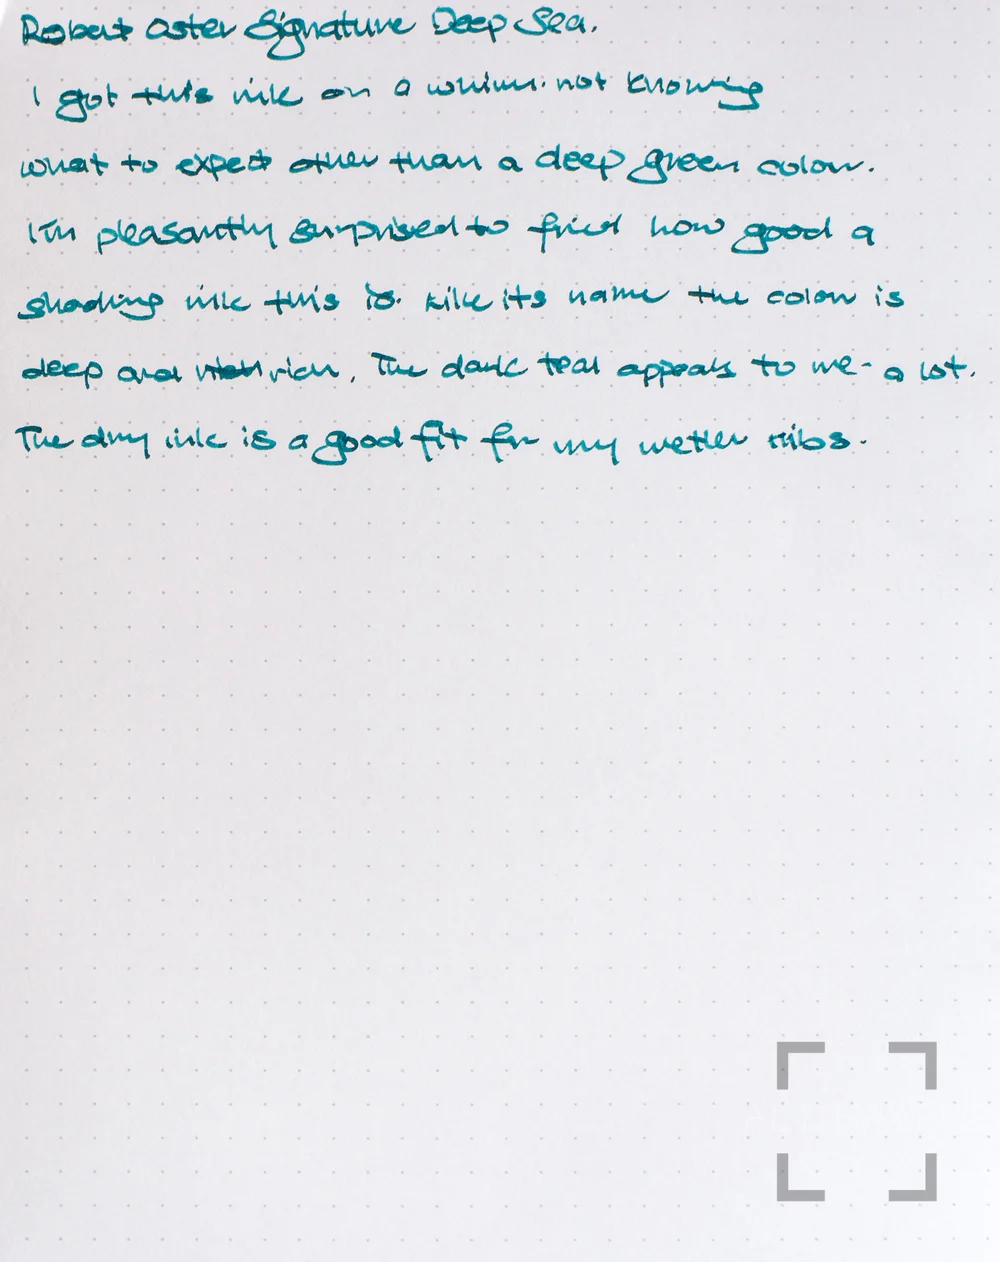 Robert Oster Signature Deep Sea.
I got this ink on a whim. not knowing
what to expect other than a deep green colour.
I'm pleasantly surprised to find how good a
shading ink this is. Like its name the colour is
deep and rich. The dark teal appeals to me - a lot.
The dry ink is a good fit for my wetter nibs.